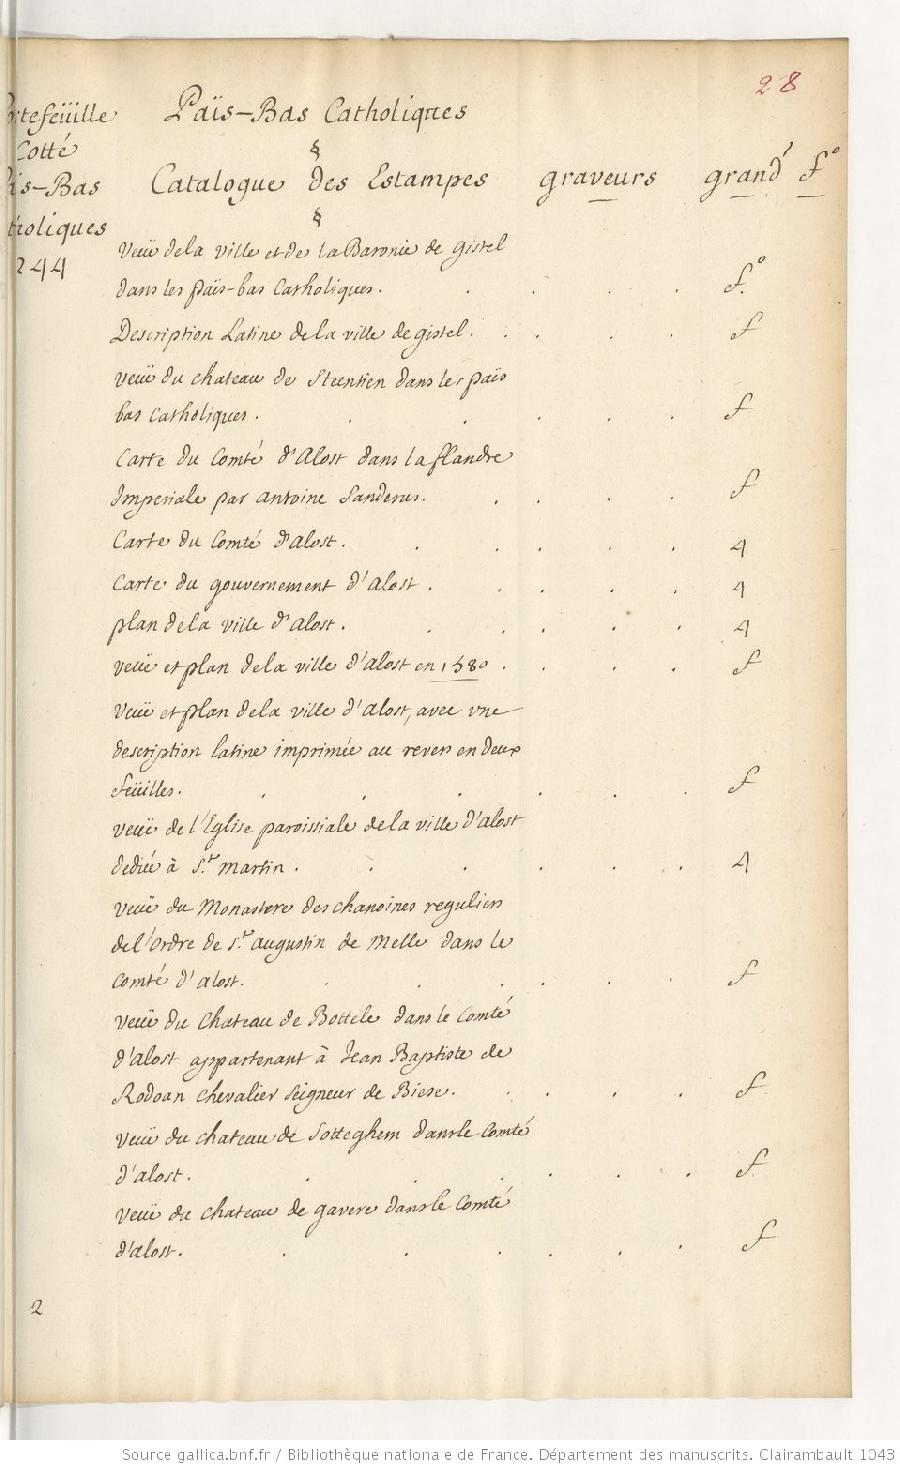 28
Païs-Bas Catholiques
rtefeüille
Cotté
is-Bas
tholiques
244
§
Catalogue des Estampes graveurs grandʳ fº
§
veüe dela ville et de la Baronie de gistel
dans les païs-bas Catholiques. fº.
Description Latine dela ville de gistel. f
veüe du chateau de Steentien dans les païs
bas Catholiques. f
Carte du Comté d'Alost dans la flandre
Imperiale par Antoine Sanderus. f
Carte du Comté d'alost. 4
Carte du gouvernement d'Alost. 4
plan dela ville d'alost. 4
veüe et plan dela ville d'alost en 1580. f
veüe et plan dela ville d'alost, avec vne
description latine imprimée au revers en deux
feüilles. f
veüe de l'Eglise paroissiale dela ville d'alost
dediée à Sᵗ. martin. 4
veüe du Monastere des chanoines reguliers
de l'Ordre de Sᵗ. augustin de Melle dans le
Comté d'alost. f
veüe du chateau de Bottele dans le Comté
d'alost appartenant à Jean Baptiste de
Rodoan chevalier Seigneur de Biese. f
veüe du chateau de Sotteghem dans le Comté
d'alost. f
veüe du chateau de gavere dans le Comté
d'alost. f
2
Source gallica.bnf.fr / Bibliothèque nationale de France. Département des manuscrits. Clairambault 1043